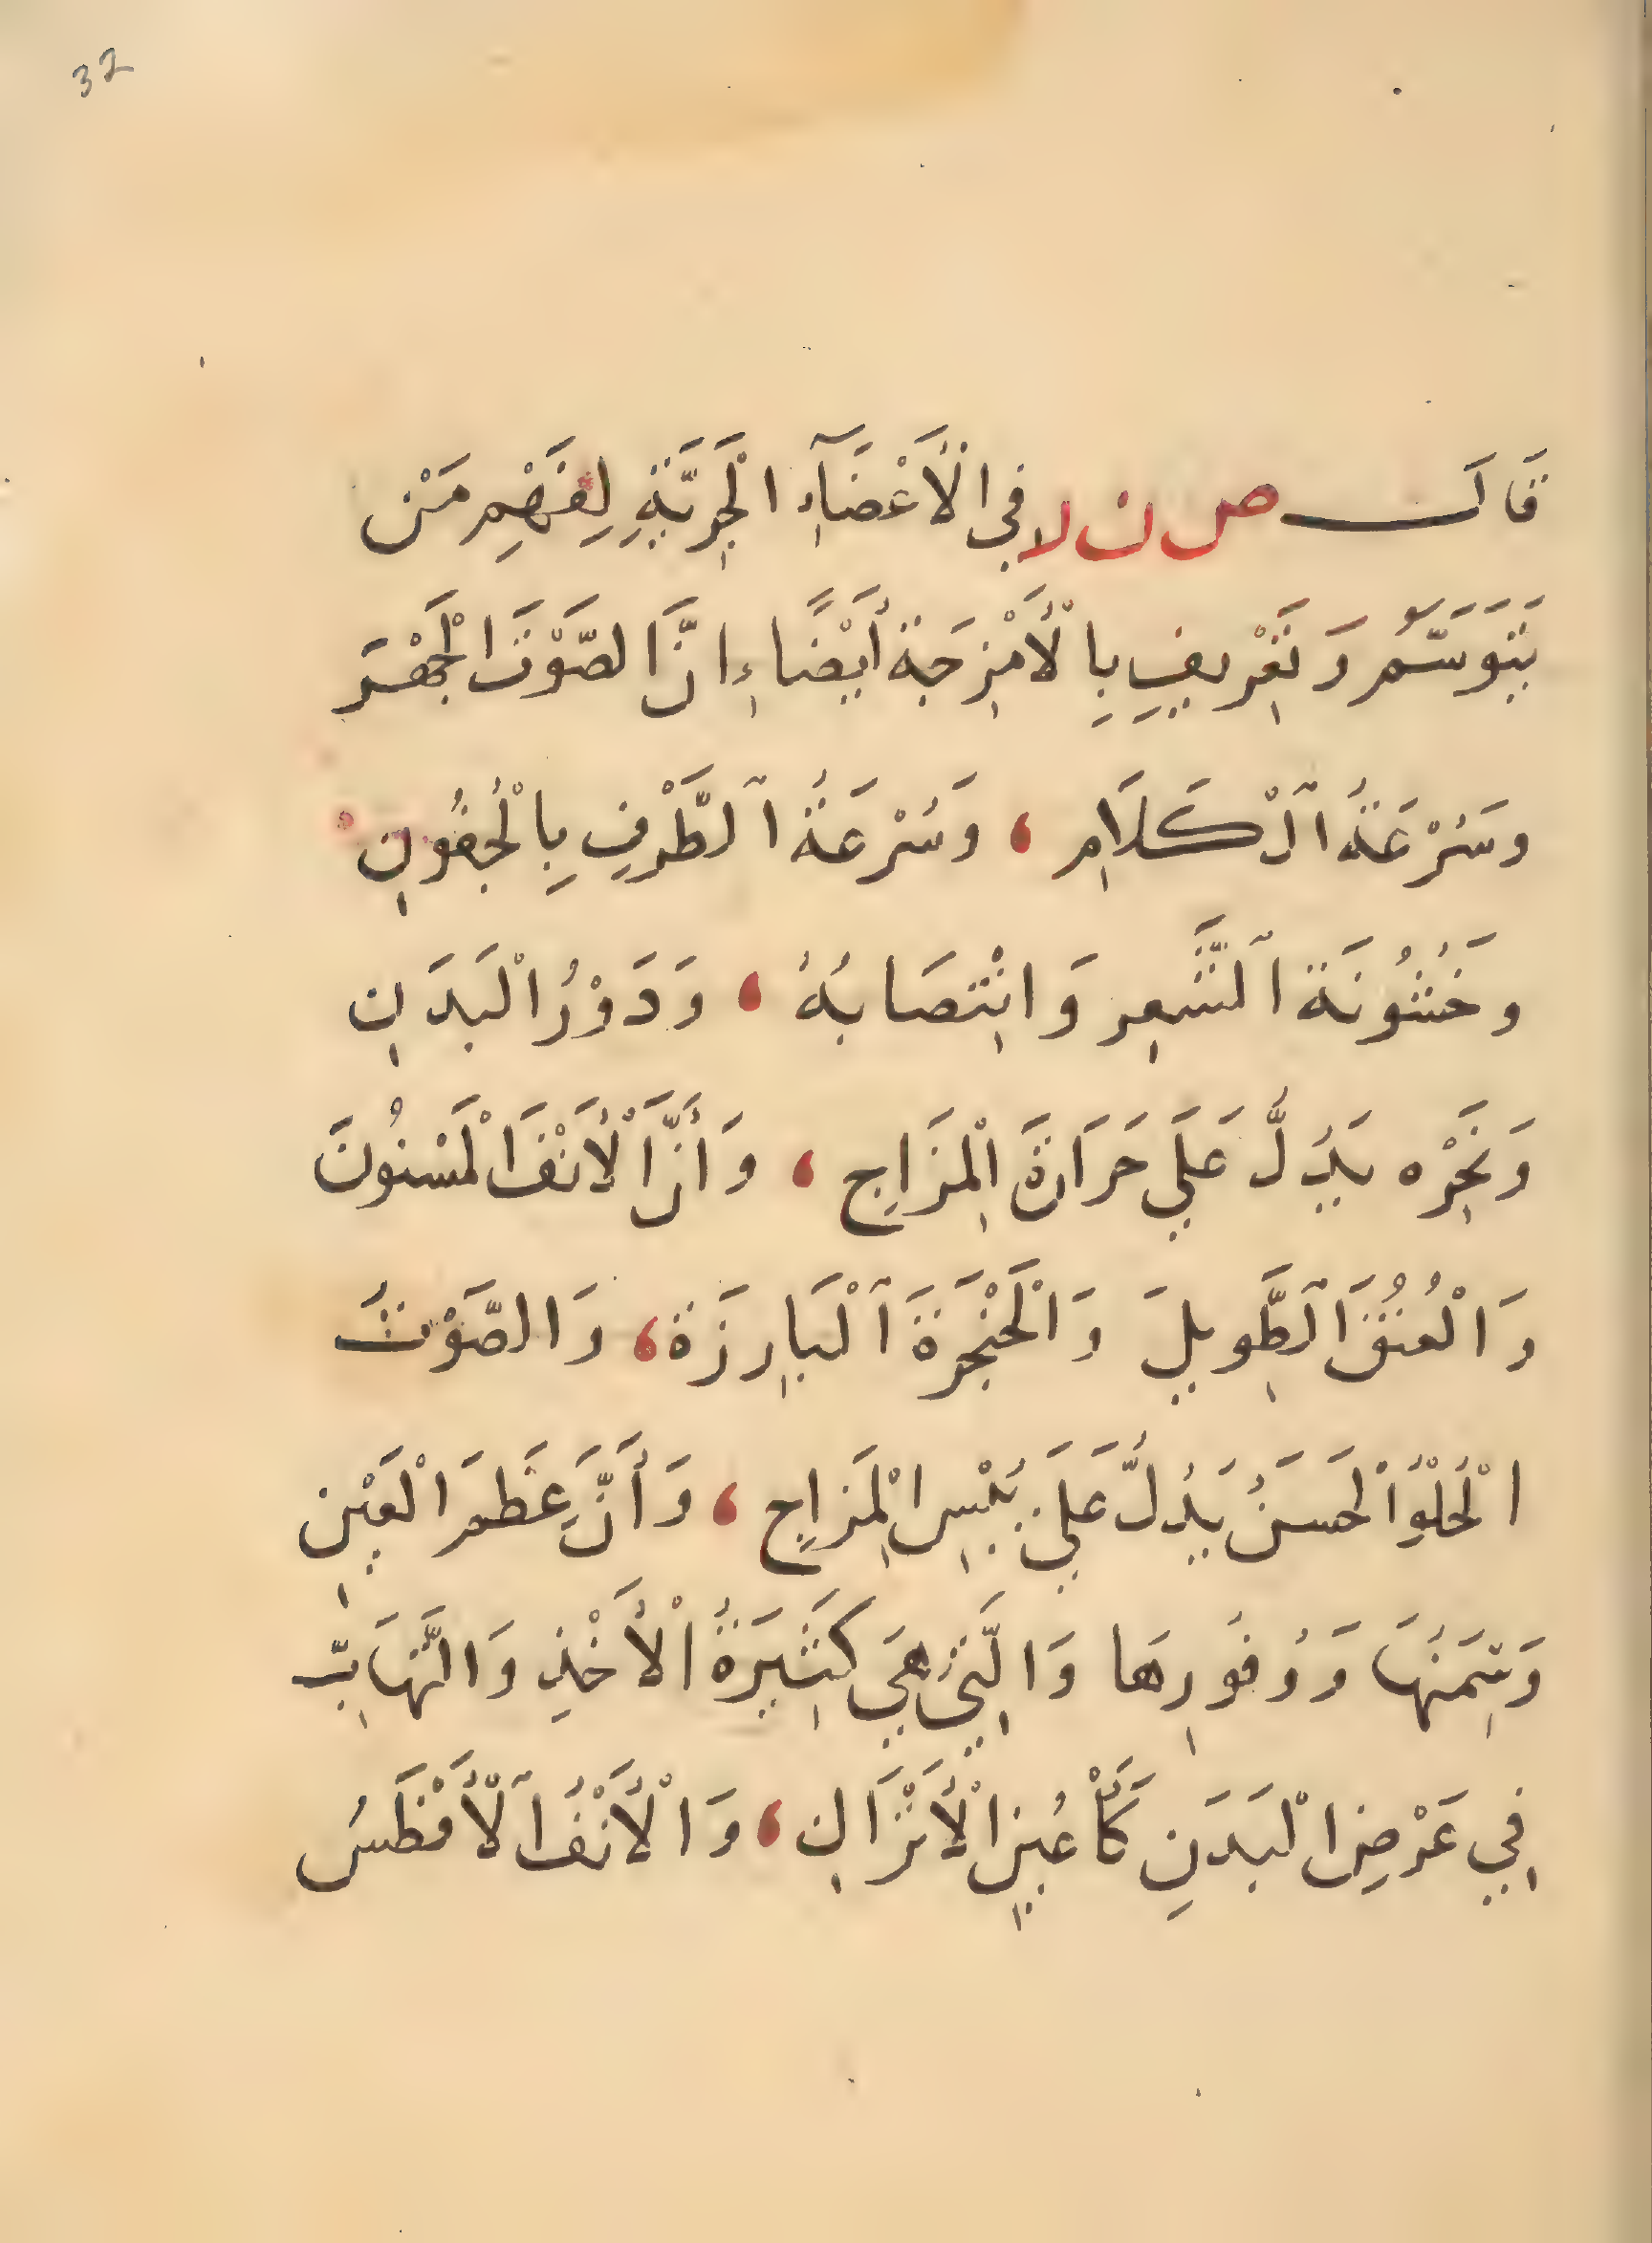 32
قَالَ ص ن لا في الْأَعْضَآءِ الْجِرِيَّةِ لِفَهْمِ مَنْ
يَتَوَسَّمُ وَتَعْرِيفِ بِالْأَمْزِجَة أَيْضًاءِ انَّ الصَّوْتَ الْجَهْرَ
وسَرْعَةُ الْكَلَامِ ، وَسُرْعَةُ الطَّرْفِ بِالْجُفُونِ
وخُشُونَة الشَّعِر وَانْتِصَابُهُ ، وَدَوْرُ الْبَدَنِ
وَنَحِرْه يَدُلَّ عَلَي حَرَارَةَ الْمِزَاجِ ، وَأَنَّ الْأَنْفَ الْمَسْنُونَ
وَالْعُنُقَ الطَّوِيلَ وَالْحَنْجَرَةَ الْبَارِزَة ، وَالصَّوْتَ
الْحُلْوُ الْحَسَنُ يَدُلُّ عَلَيَ يُبْسِ الْمَزِاجِ ، وَأَنَّ عَظَمَ الْعَيْنِ
وَسِمَنُهَا وَوُفُورِهَا وَالَّتِي هِيَ كَثِيَرَةُ الْأَخْذِ وَالنَّهَابِّ
فِي عَرْضِ الْبَدَنِ كَأَعُيِنِ الْأَتْرَاكِ ، وَالْأَنْفُ الْأَفْطَسُ